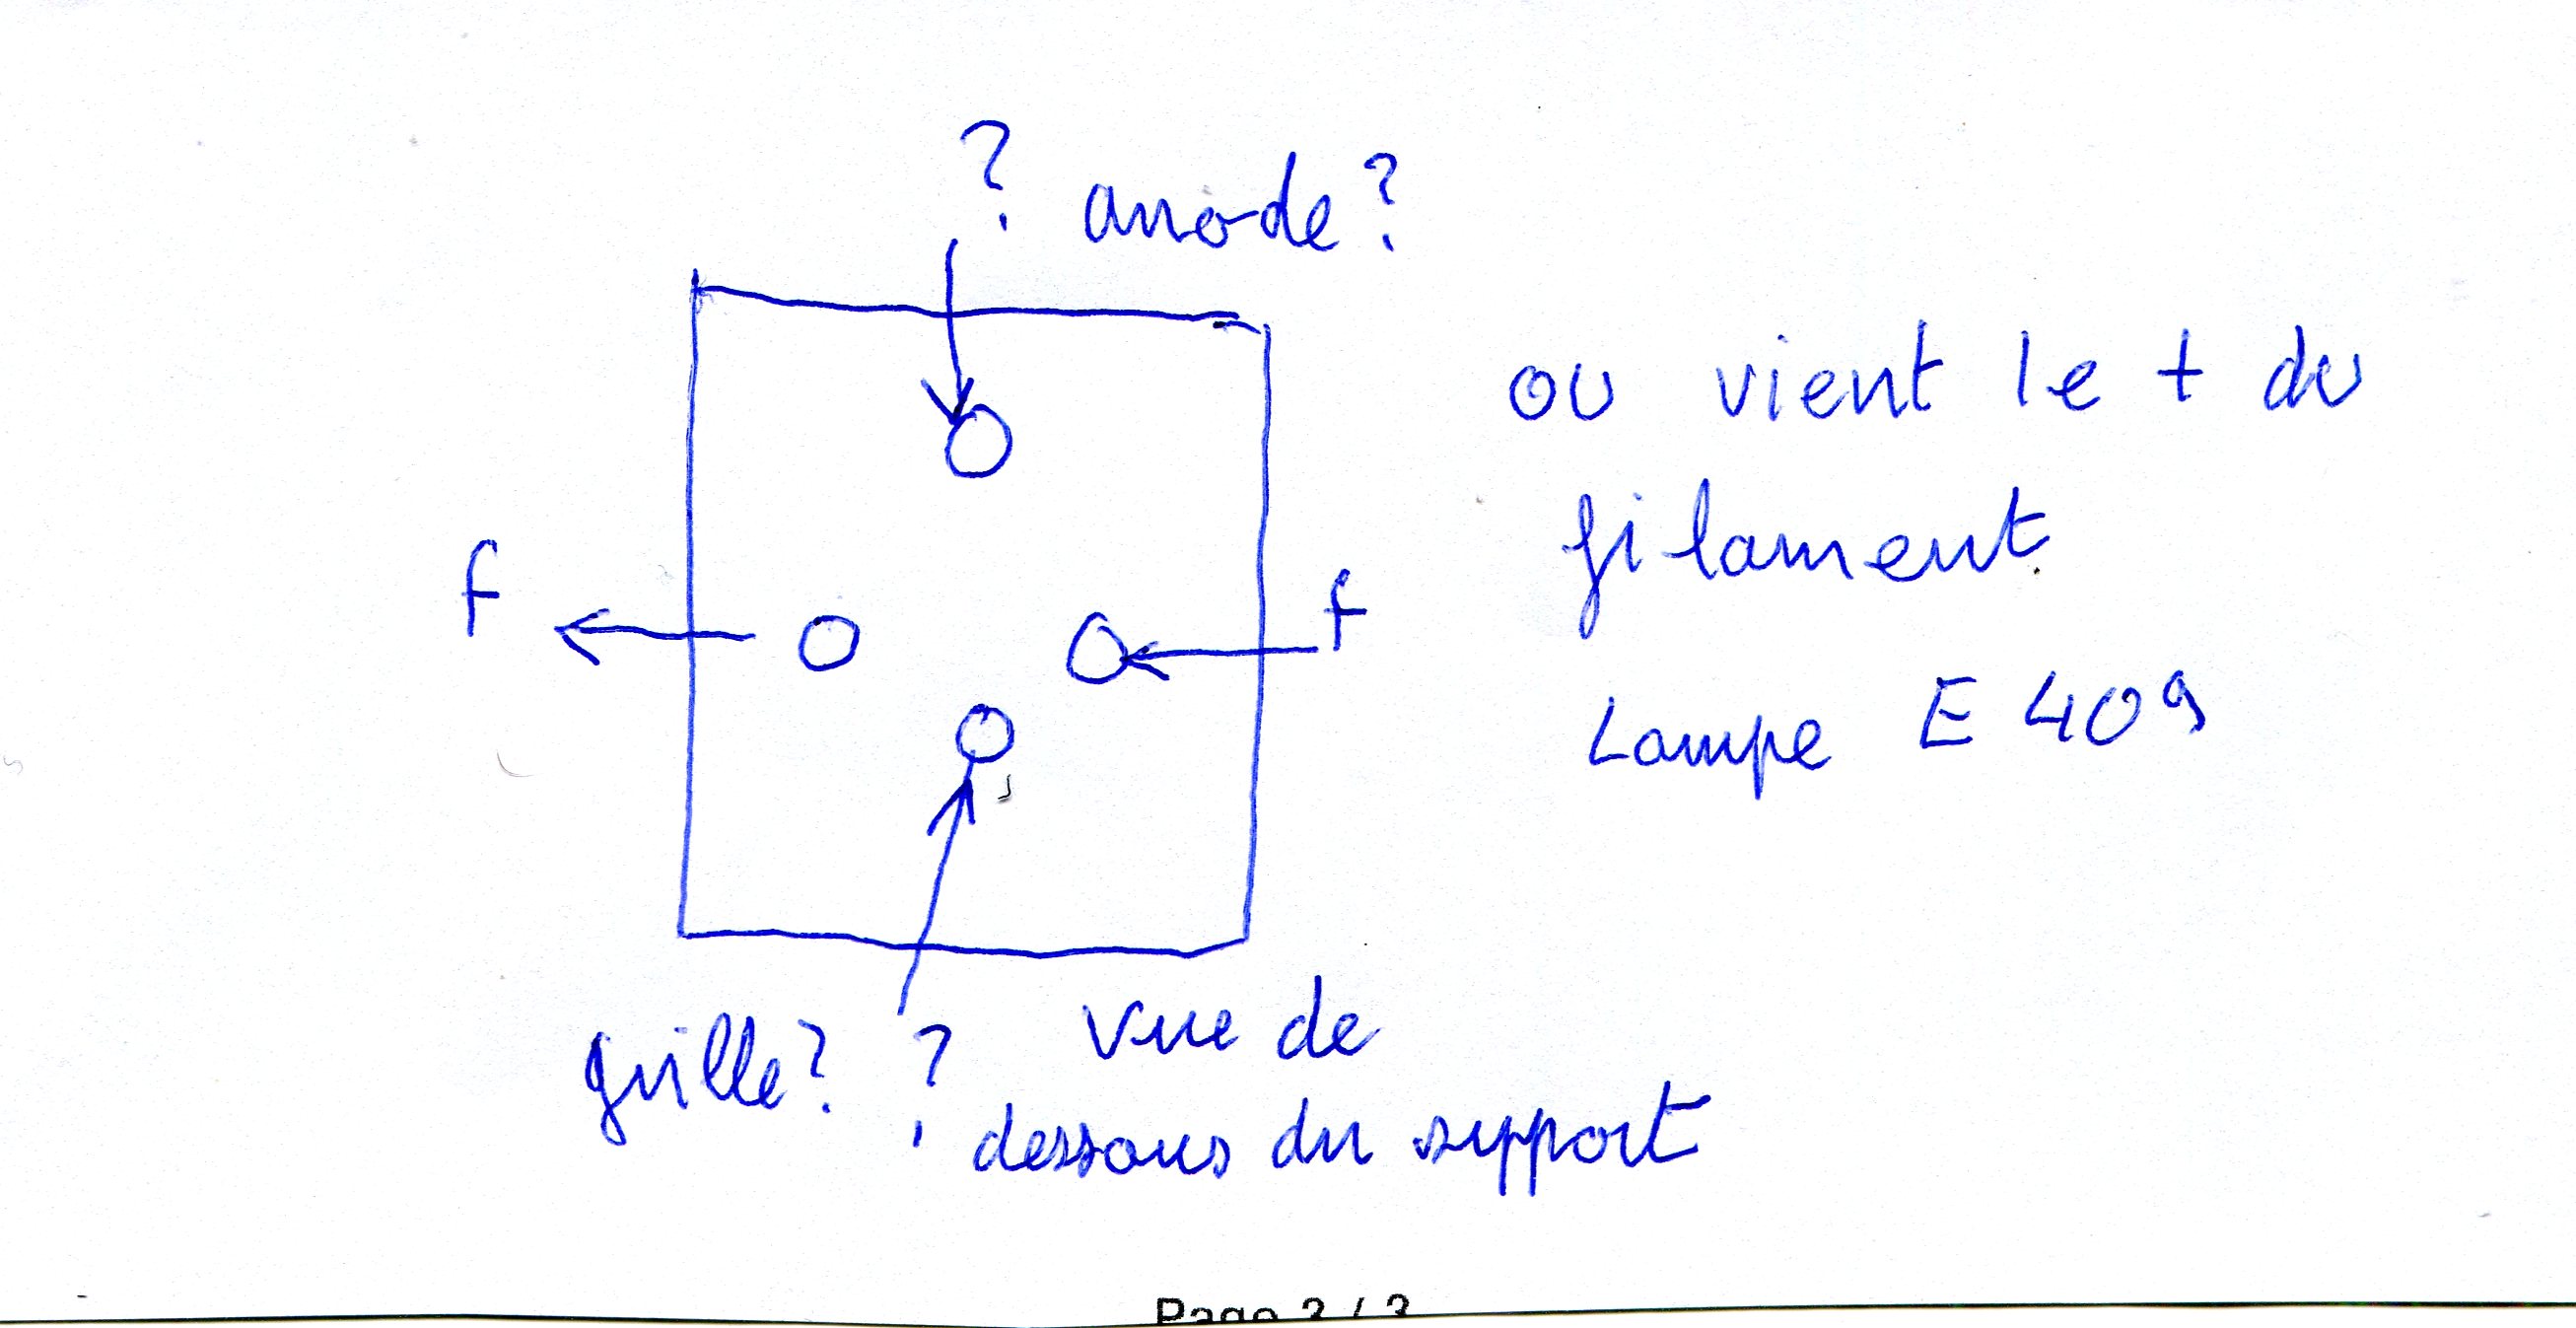 ? anode?
f
f
ou vient le + du
filament
Lampe E 409
grille? ?
vue de
dessous du support
Page 3 / 3